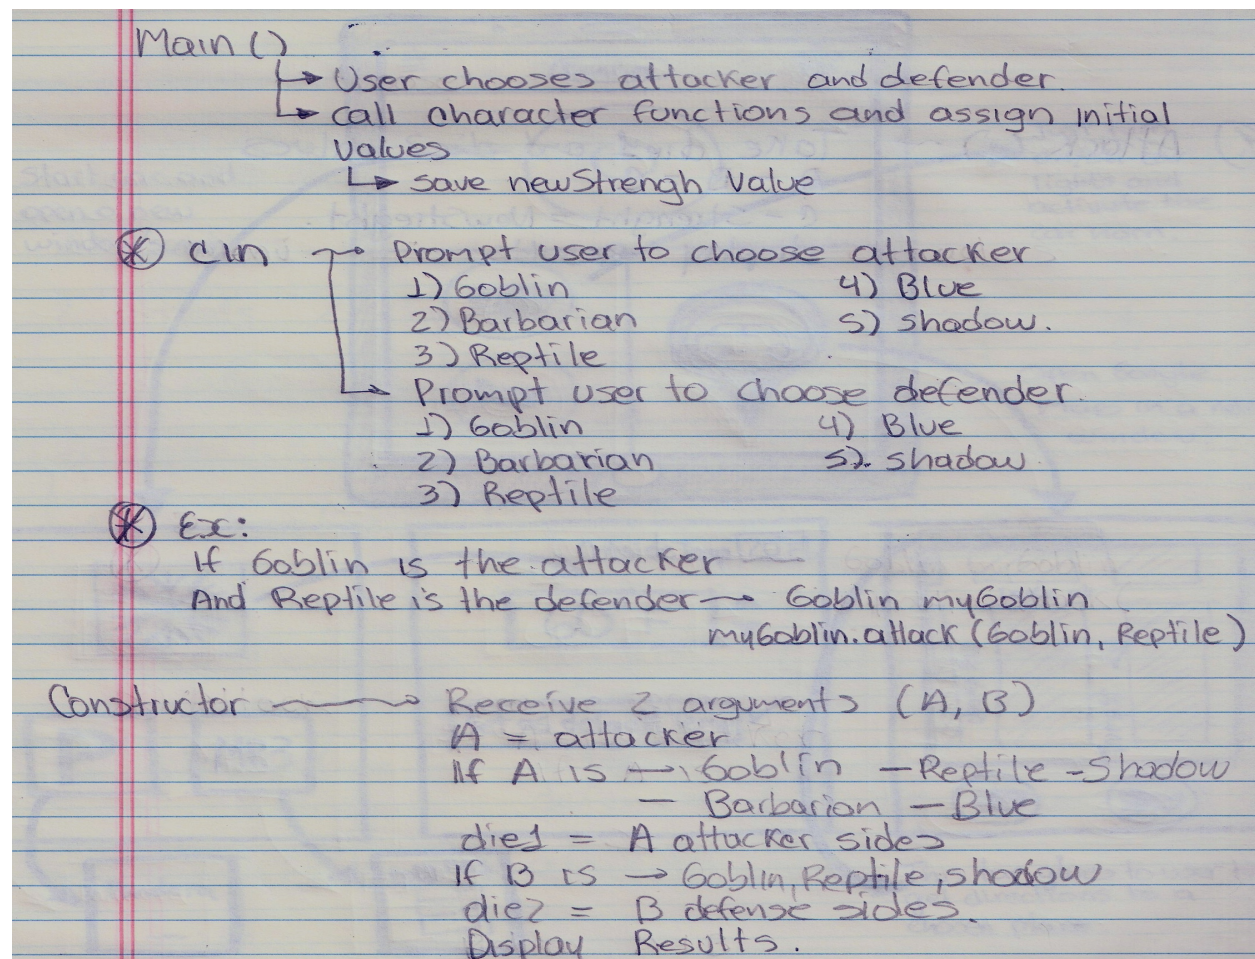 Main ()
→ User chooses attacker and defender.
→ call character functions and assign initial
values
→ save newStrengh value
* cin → Prompt user to choose attacker
1) Goblin 4) Blue
2) Barbarian 5) Shadow.
3) Reptile
→ Prompt user to choose defender.
1) Goblin 4) Blue
2) Barbarian 5) Shadow
3) Reptile
* Ex:
If Goblin is the attacker
And Reptile is the defender → Goblin myGoblin
myGoblin.attack (Goblin, Reptile)
Constructor → Receive 2 arguments (A, B)
A = attacker
If A is → Goblin - Reptile - Shadow
- Barbarian - Blue
die1 = A attacker sides
If B is → Goblin, Reptile, shadow
die2 = B defense sides.
Display Results.